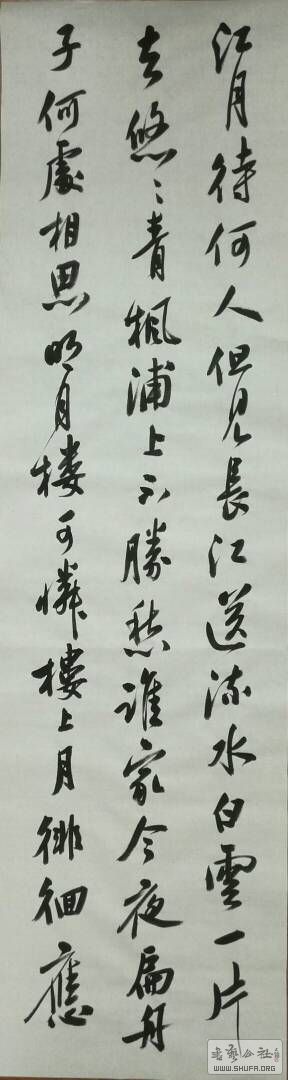 江月待何人但見長江送流水白雲一片
去悠〻青楓浦上不勝愁誰家今夜扁舟
子何處相思明月樓可憐樓上月徘徊應
書藝公社
WWW.SHUFA.ORG